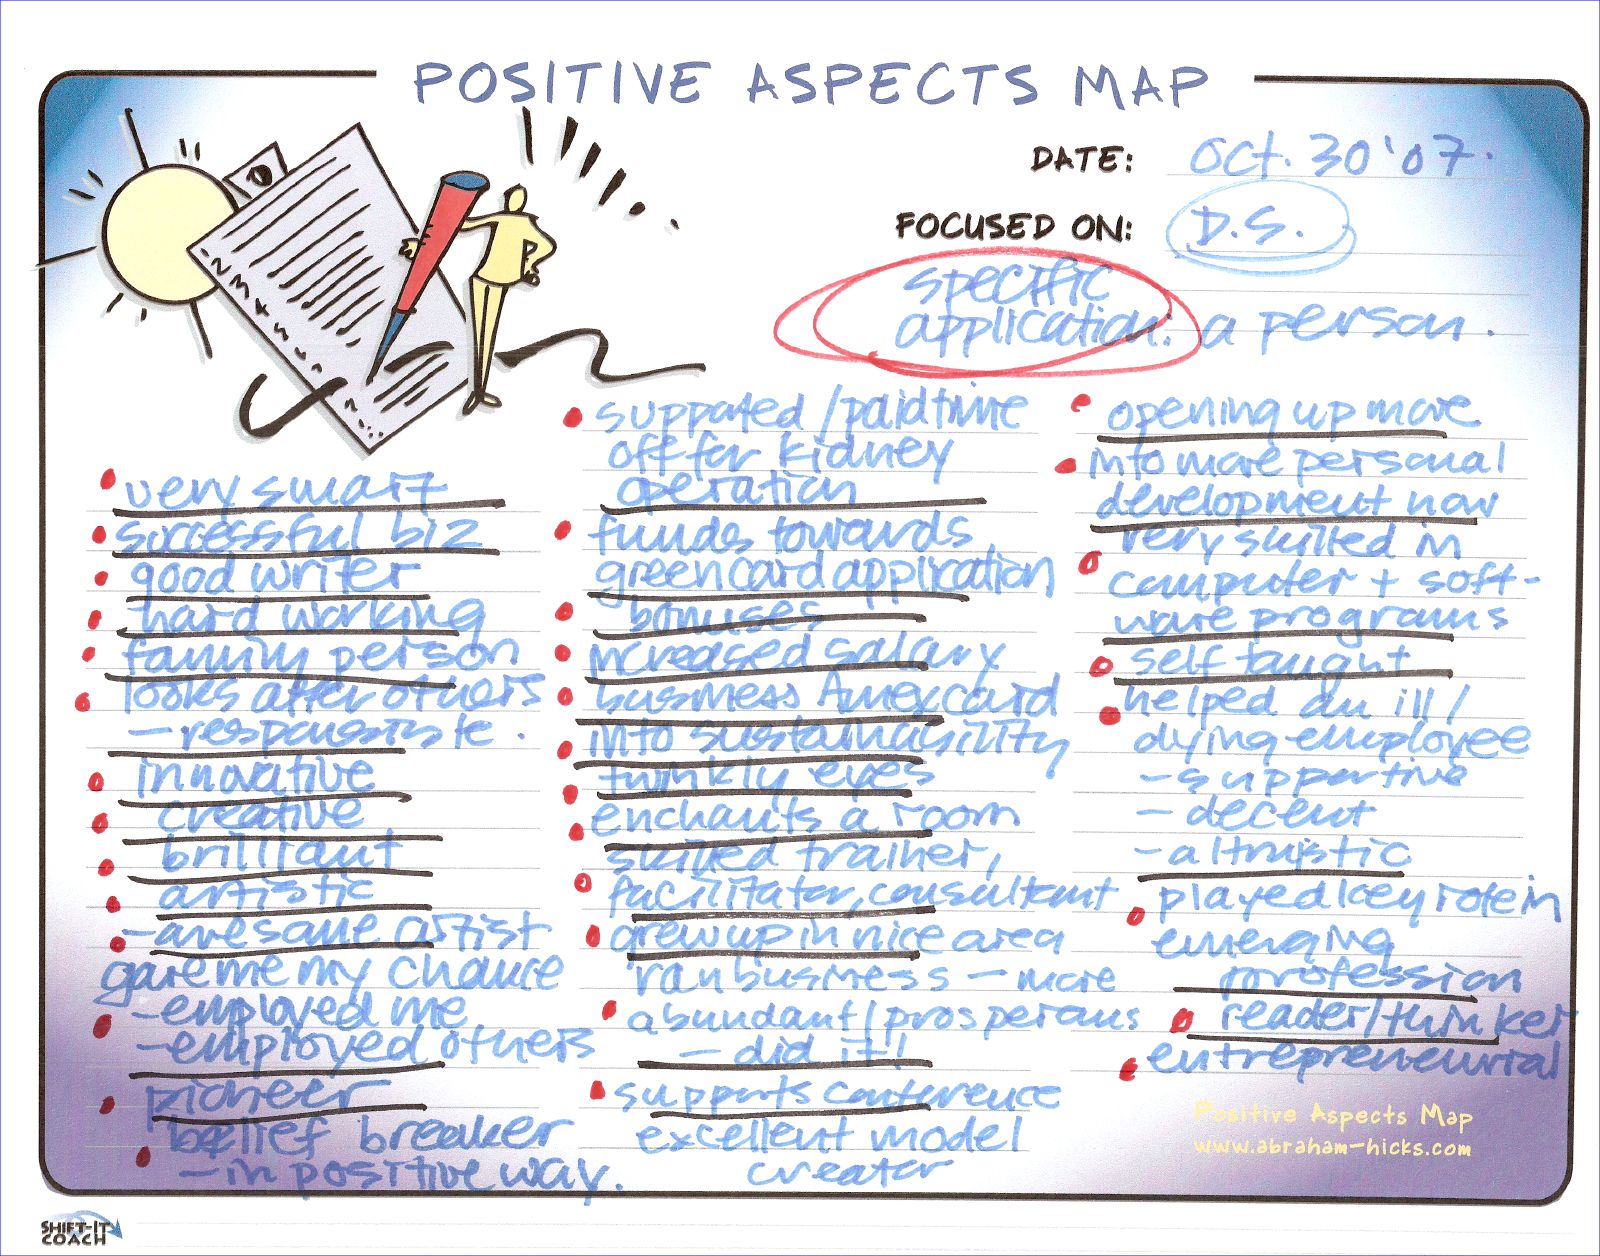 POSITIVE ASPECTS MAP
DATE: Oct. 30 '07.
FOCUSED ON: D.S.
specific
application: a person.
very smart
successful biz
good writer
hard working
family person
looks after others
- responsible.
innovative
creative
brilliant
artistic
- awesome artist
gave me my chance
- employed me
- employed others
pioneer
belief breaker
- in positive way.
supported / paid time
off for kidney
operation
funds towards
green card application
bonuses
increased salary
business Amex card
into sustainability
twinkly eyes
enchants a room
skilled trainer,
facilitator, consultant
grew up in nice area
ran business - more
abundant / prosperous
- did it!
supports conference
excellent model
creator
opening up more
into more personal
development now
very skilled in
computer + soft-
ware programs
self taught
helped an ill /
dying employee
- supportive
- decent
- altruistic
played key role in
emerging
profession
reader/thinker
entrepreneurial
Positive Aspects Map
www.abraham-hicks.com
SHIFT-IT
COACH